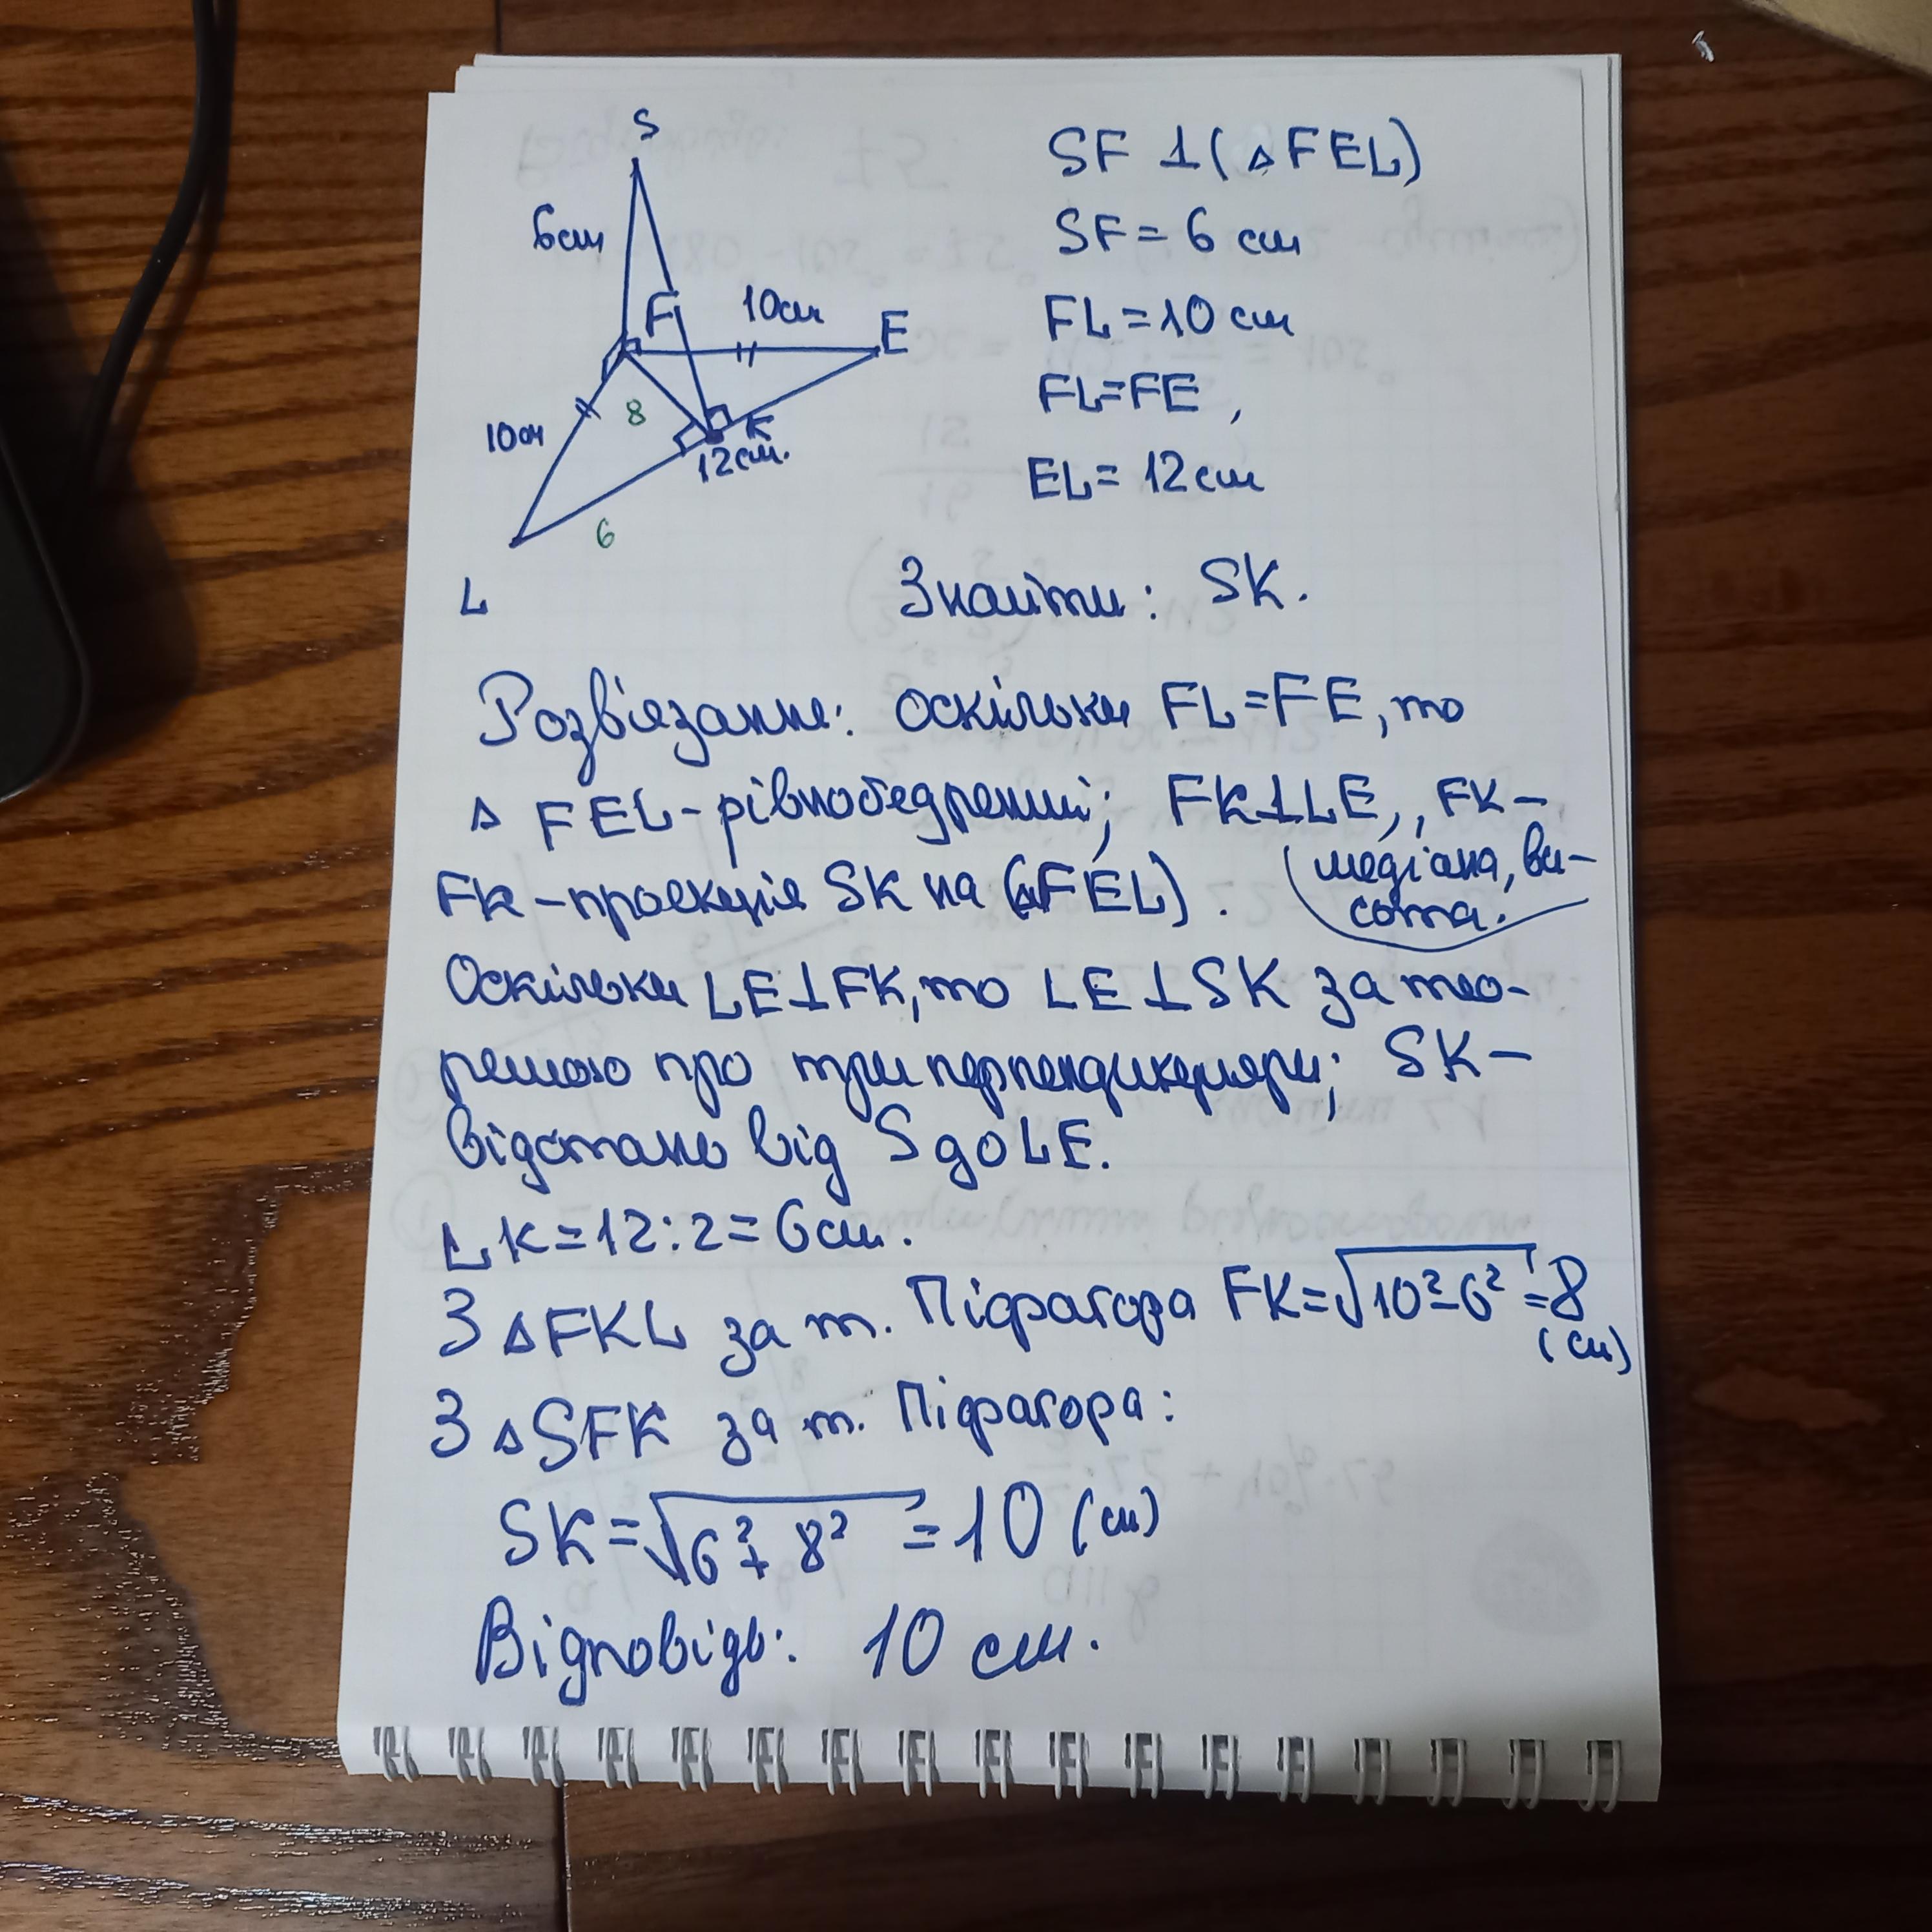 S
6см
F
10см
E
10см
8
K
12см.
6
L
SF ⊥ (△FEL)
SF = 6 см
FL = 10 см
FL = FE,
EL = 12 см
Знайти: SK.
Розв'язання: Оскільки FL=FE, то
△ FEL - рівнобедрений; FK⊥LE, , FK -
(медіана, ви-
FK - проекція SK на (△FEL).
сота.
Оскільки LE⊥FK, то LE⊥SK за тео-
ремою про три перпендикуляри; SK -
відстань від S до LE.
LK = 12 : 2 = 6 см.
З △FKL за т. Піфагора FK = √10² - 6² = 8
(см)
З △SFK за т. Піфагора:
SK = √6² + 8² = 10 (см)
Відповідь: 10 см.